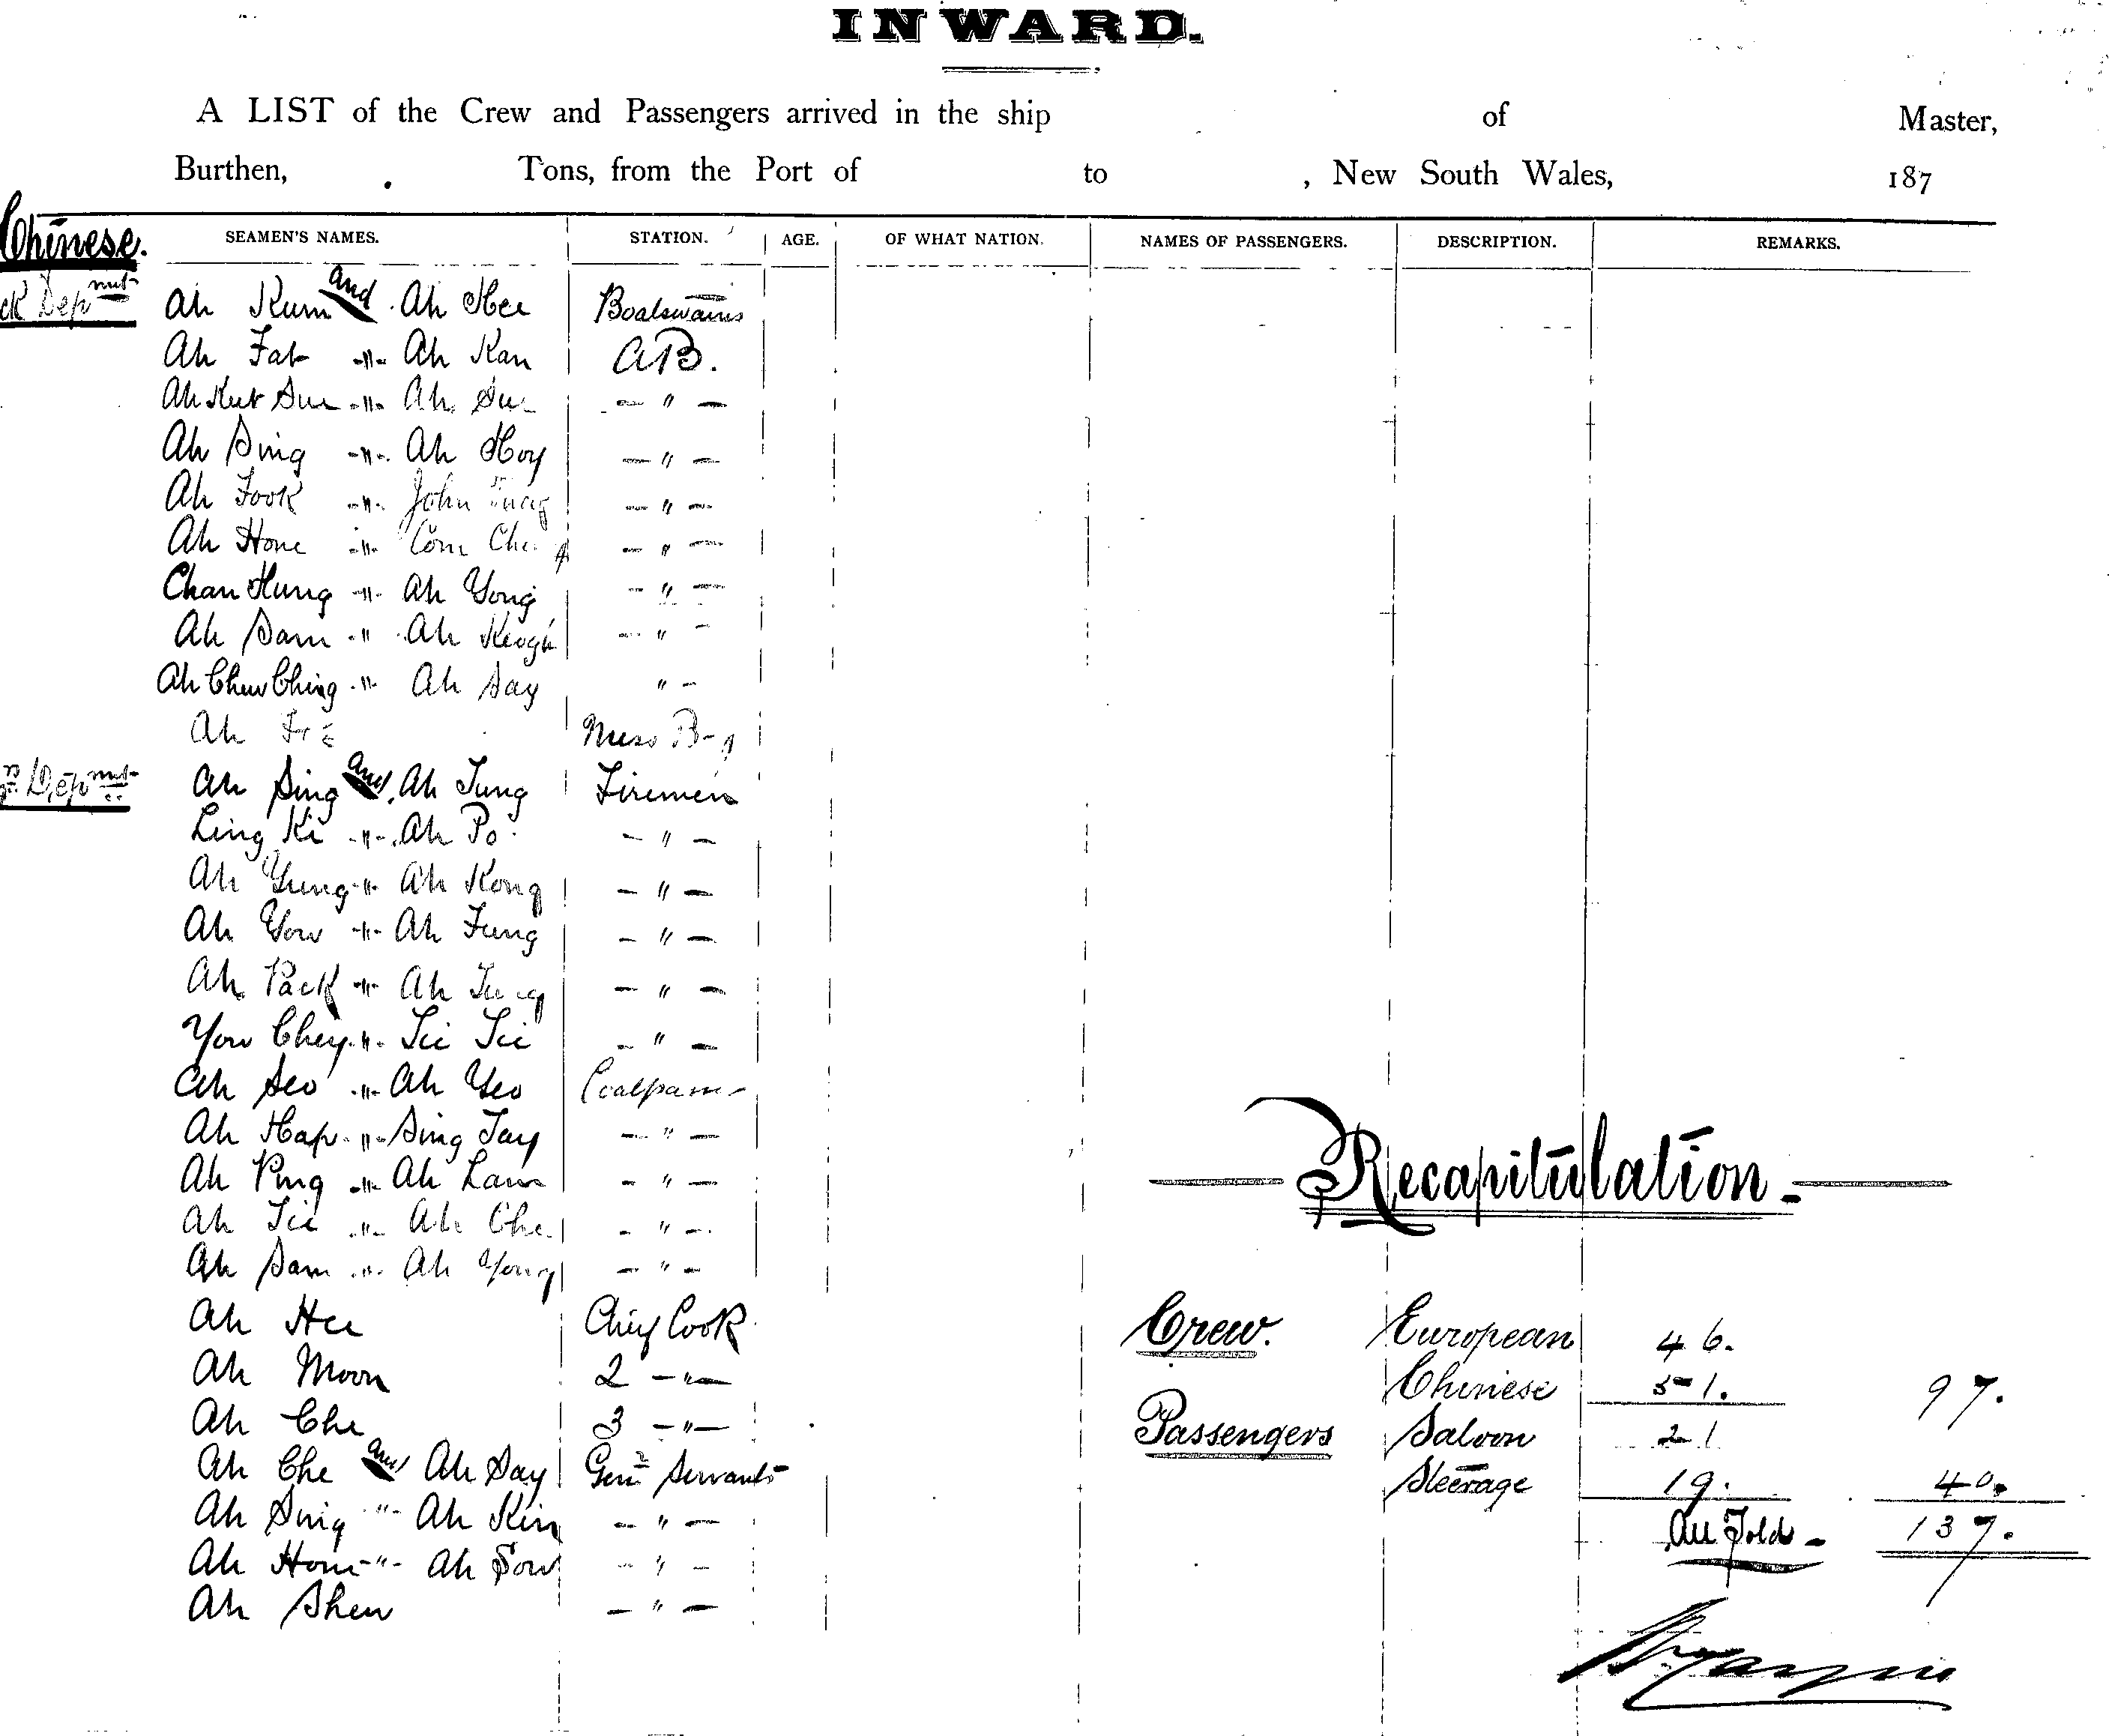 INWARD.
A LIST of the Crew and Passengers arrived in the ship of Master,
Burthen, Tons, from the Port of to , New South Wales, 187
Chinese.
SEAMEN'S NAMES. STATION. AGE. OF WHAT NATION. NAMES OF PASSENGERS. DESCRIPTION. REMARKS.
ck Depmnt
Ah Kum and Ah Hee Boatswains
Ah Fat -"- Ah Kan AB.
Ah Kut Sue -"- Ah Su - " -
Ah Sing -"- Ah Hoy - " -
Ah Fook -"- John - " -
Ah Hone -"- - " -
Chan Hung -"- Ah Yong - " -
Ah Sam -"- Ah Keogh - " -
Ah Chew Ching -"- Ah Say " -
Ah Mess
Depmnt
Ah Sing and Ah Tung Firemen
Ling Ki -"- Ah Po - " -
Ah Yung -"- Ah Kong - " -
Ah Yow -"- Ah Fung - " -
Ah Pack -"- Ah - " -
You Chey -"- Tie Tie - " -
Ah Seo -"- Ah Yeo
Ah Hap -"- Sing Tay - " -
Ah Ping -"- Ah Lam - " -
Ah Tie -"- Ah Che - " -
Ah Sam -"- Ah Yong - " -
Recapitulation.
Ah Hee Chief Cook
Ah Moon 2 -"-
Ah Che 3 -"-
Ah Che and Ah Say Genl Servants
Ah Sing -"- Ah Kin - " -
Ah Hone -"- Ah Sow - " -
Ah Shew - " -
Crew. European 46.
Chinese 51. 97.
Passengers Saloon 21
Steerage 19. 40.
All Told - 137.